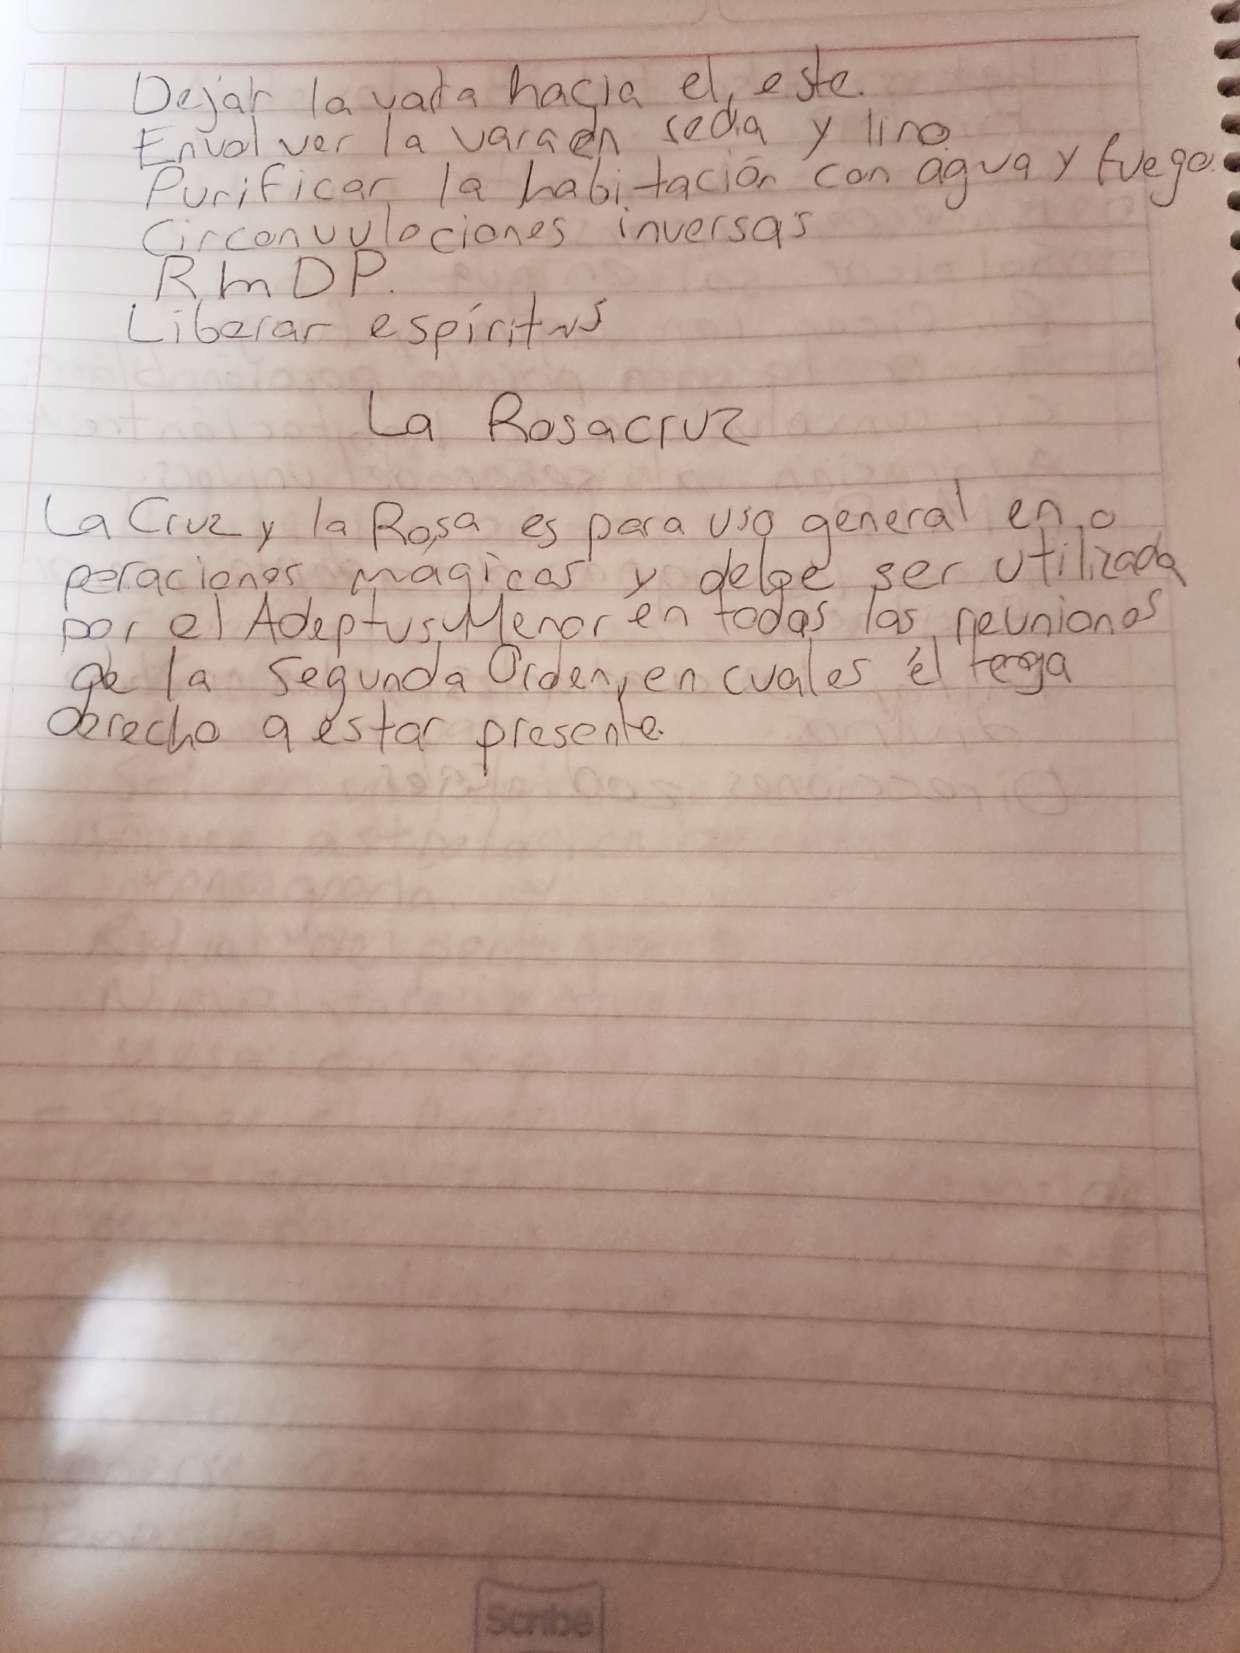 Dejar la vara hacia el este.
Envolver la vara en seda y lino
Purificar la habitación con agua y fuego.
Circonvulociones inversas
RmDP.
Liberar espíritus
La Rosacruz
La Cruz y la Rosa es para uso general en o
peraciones magicas y debe ser utilizada
por el Adeptus Menor en todas las reuniones
de la Segunda Orden, en cuales él tenga
derecho a estar presente.
Scribe